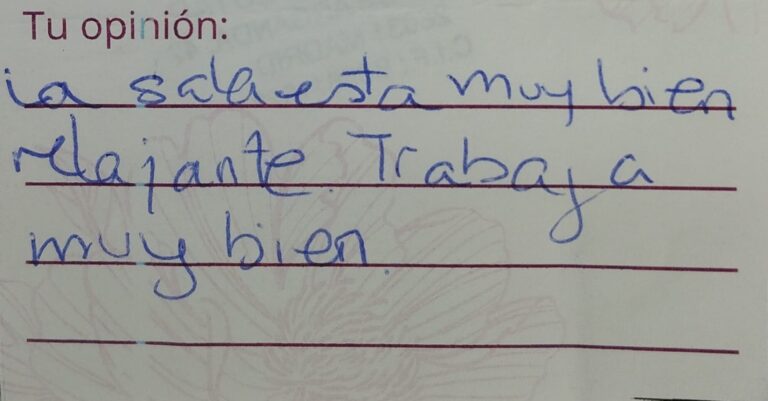 Tu opinión:
la sala esta muy bien
relajante. Trabaja
muy bien.